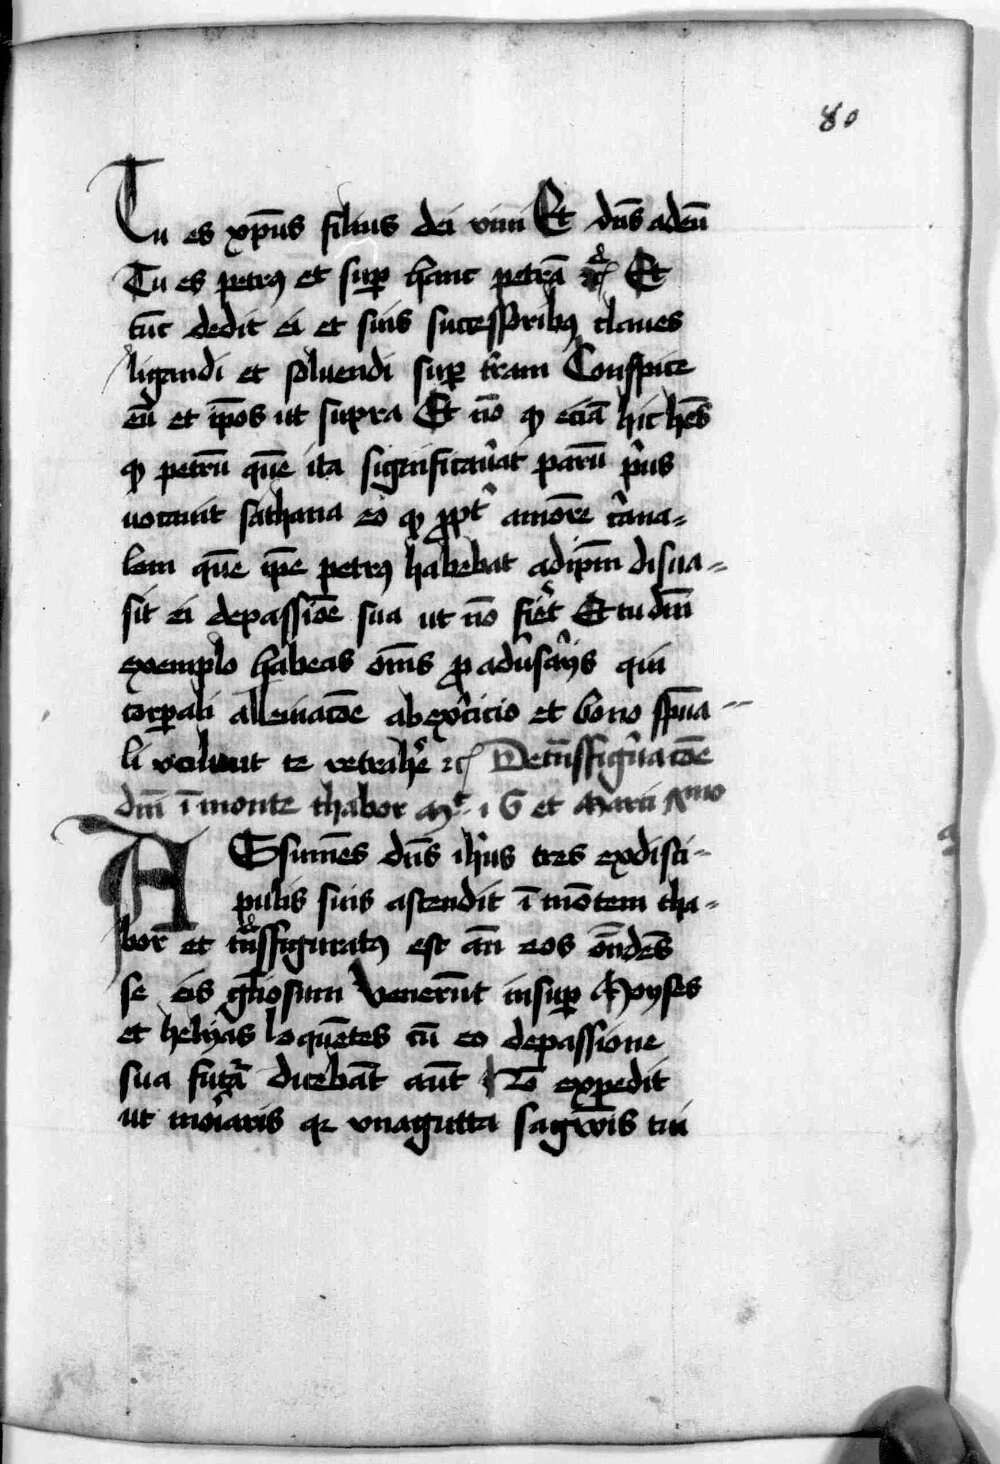 80
Tu es xp̄us filius dei viui Et dn̄s ad eū
Tu es petrꝰ et suꝑ hanc petrā ⁊c̄ Et
tūc dedit ei et suis successoribꝫ claues
ligandi et soluendi suꝑ terram Conspice
eū et ip̄os ut supra Et nō ꝙ eciā hic hēs
ꝙ petrū quē ita significauꝰat parū pꝰus
uocauit sathana eo ꝙ ꝓptꝰ amorē cꝰaꝛna-
lem quē ip̄e petrꝰ habebat ad ip̄m disua-
sit ei de passiōe sua ut nō fieꝰt Et tu dn̄i
exemplo habeas om̄s ꝓ aduꝰsaꝰiis qui
corꝑali alleuiacōe ab exꝰcicio et bono sp̄ua-
li uolunt te retraheꝰ ⁊c̄ De tn̄sfiguꝰacōe
dn̄i ī monte thabor Mt i G et Marci
ASsumēs dn̄s ihūs tres ex disci-
pulis suis ascendit ī mōtem tha-
bor et tn̄sfiguratꝰ est an̄ eos on̄dēs
se eis glōiosum Venerūt insuꝑ Moyses
et helyas loquētes cū eo de passione
sua futꝰa dicebāt aūt Nō expedit
ut moriaris qꝛ vna gutta sagwīs tui